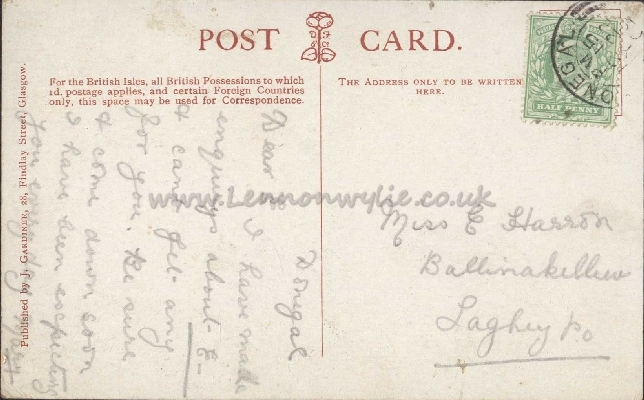 POST CARD.
For the British Isles, all British Possessions to which
1d. postage applies, and certain Foreign Countries
only, this space may be used for Correspondence.
THE ADDRESS ONLY TO BE WRITTEN
HERE.
HALF PENNY
DONEGAL
Published by J. GARDINER, 28, Findlay Street, Glasgow.
Donegal
Dear I have made
enquirys about E-
& cant get any
for you. Be sure
& come down soon
I have been expecting
you every day
www.Lennonwylie.co.uk
Miss E Harron
Ballinakillew
Laghey Po